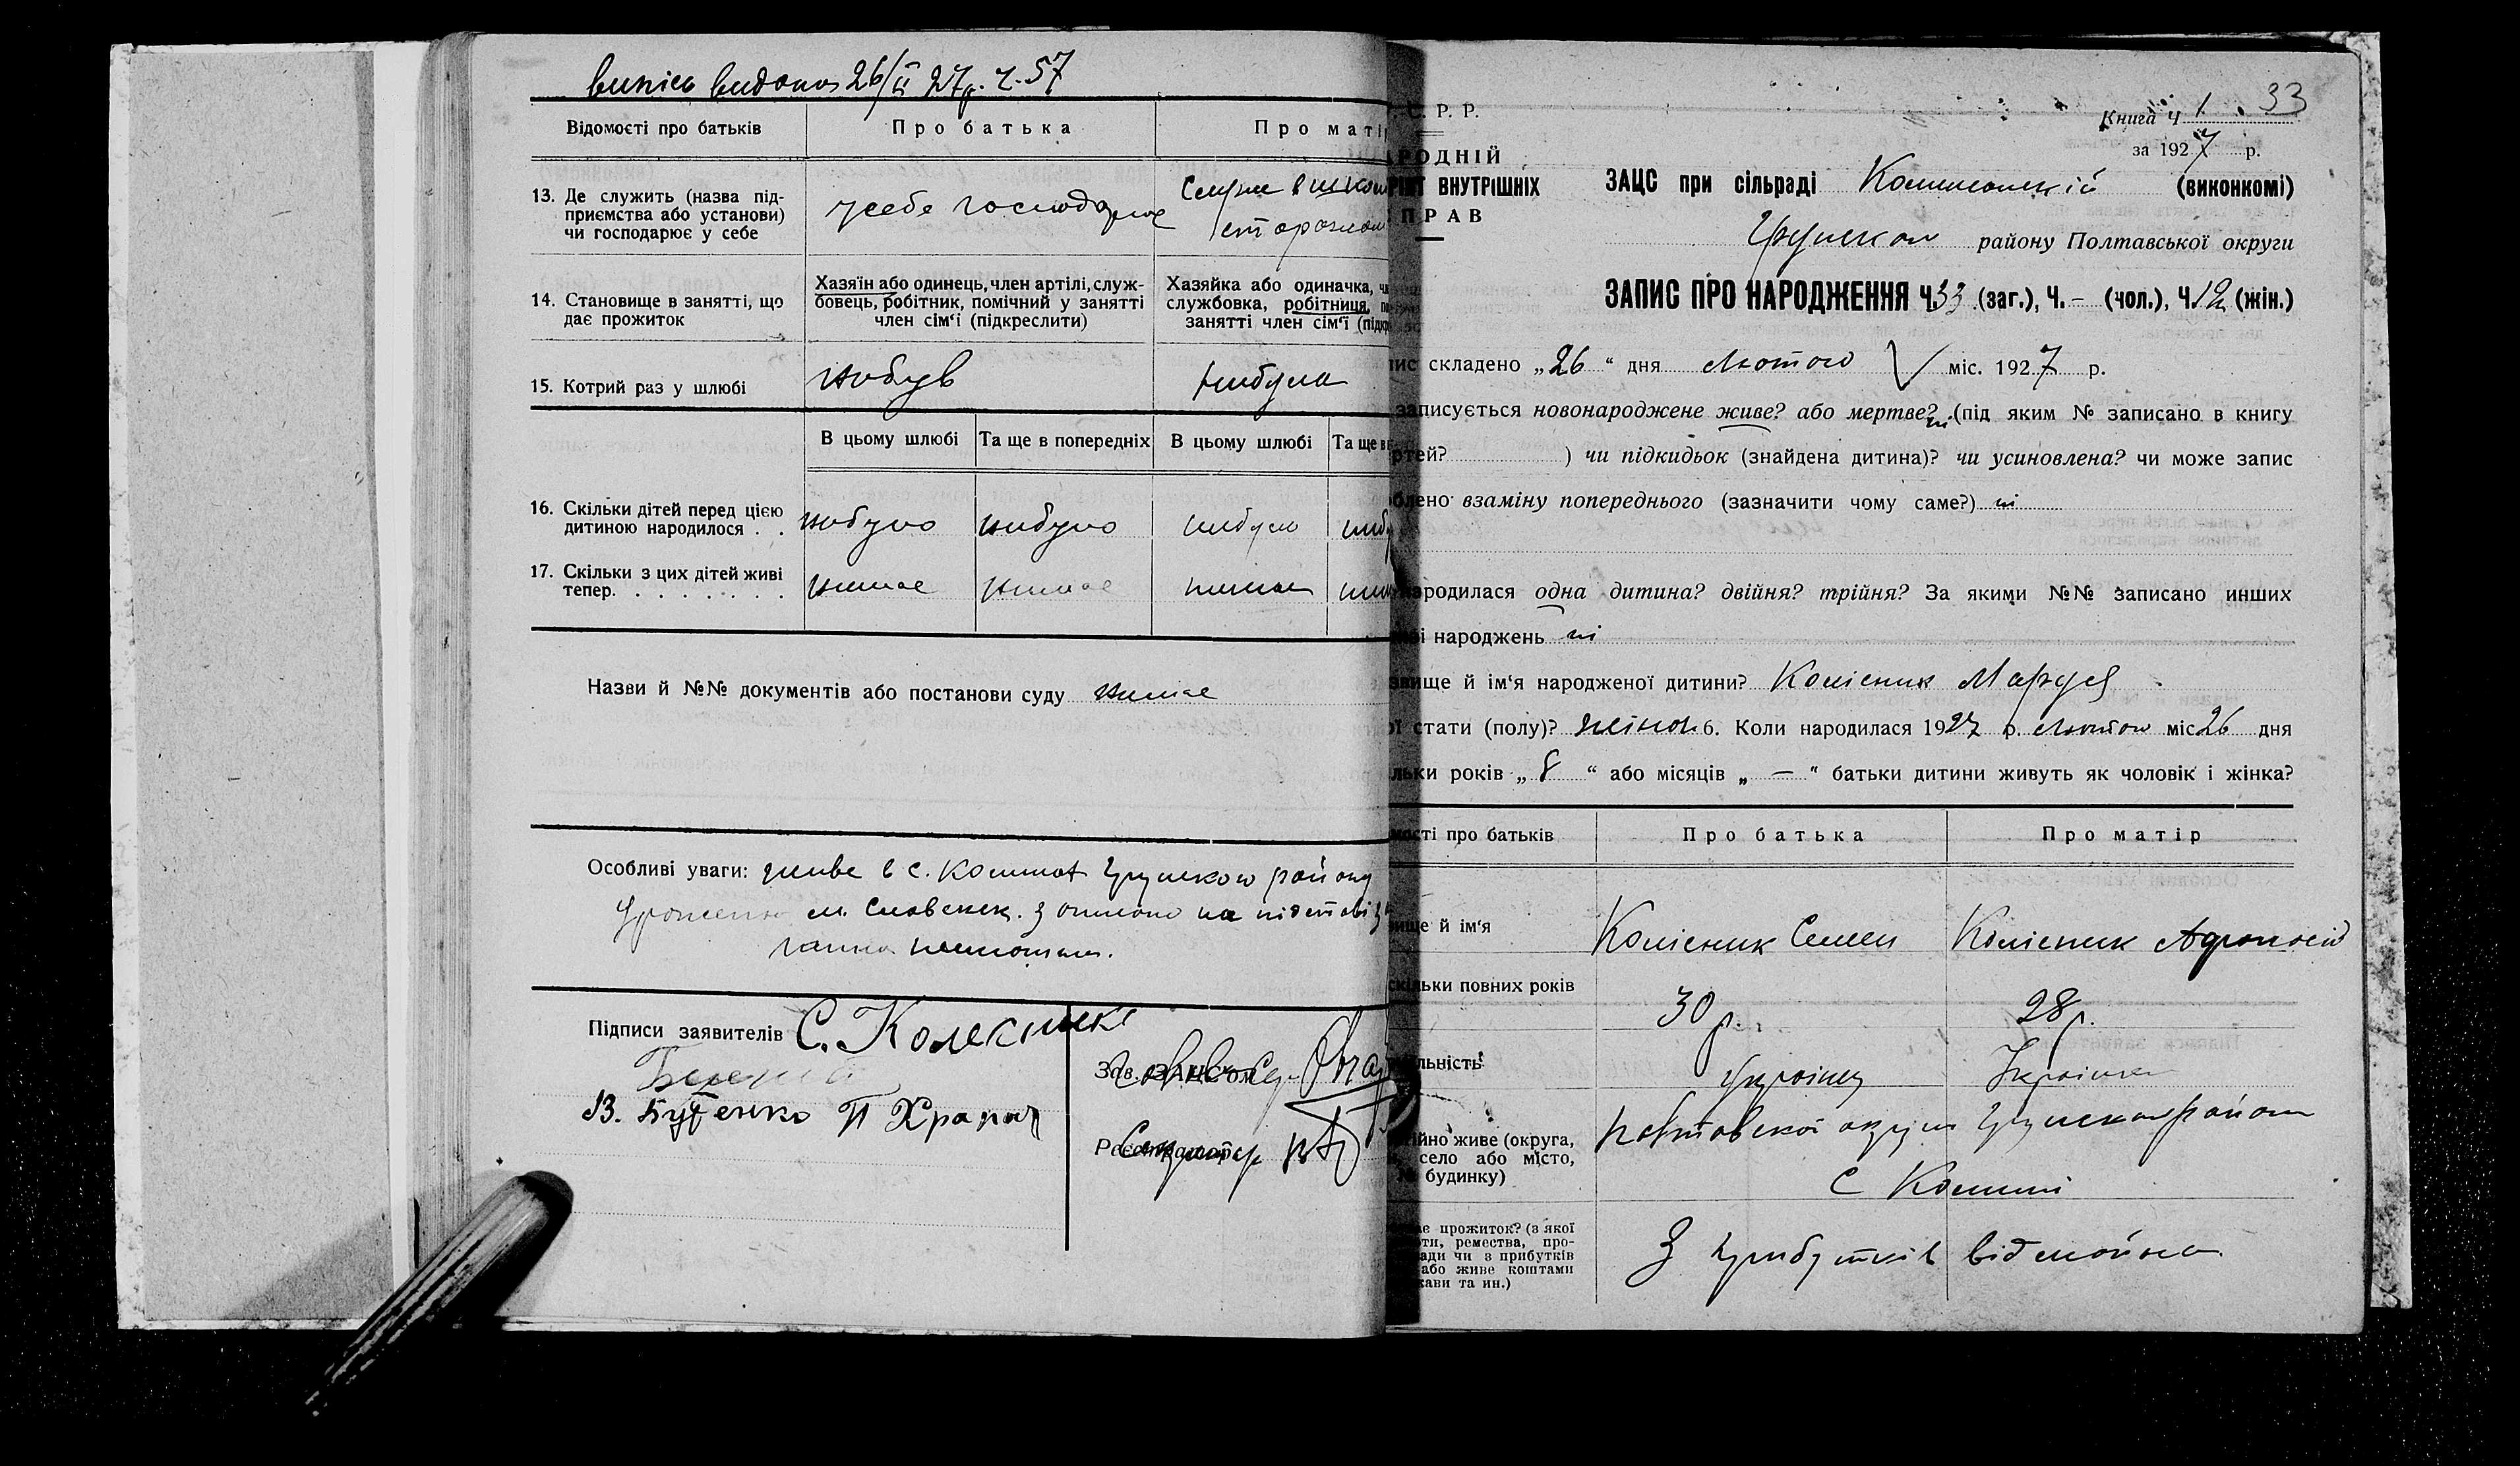 26/II 27р. ч. 57
Відомості про батьків
Про батька
Про матір
13. Де служить (назва під-
приємства або установи)
чи господарює у себе
усебе господарює
Служе в школі
сторожом
14. Становище в занятті, що
дає прожиток
Хазяїн або одинець, член артілі, служ-
бовець, робітник, помічний у занятті
член сім'ї (підкреслити)
Хазяйка або одиначка,
службовка, робітниця,
занятті член сім'ї
15. Котрий раз у шлюбі
небув
небула
В цьому шлюбі
Та ще в попередніх
В цьому шлюбі
Та ще в
16. Скільки дітей перед цією
дитиною народилося . .
небуло
небуло
небуло
17. Скільки з цих дітей живі
тепер. . . . . . . .
немає
немає
немає
Назви й №№ документів або постанови суду немає
Особливі уваги: живе в с. району
на підставі
Підписи заявителів С. Колєсник
В. Бутенко П Храпач
Зав. ЗАЦСом
Реєстратор
Секретар
33
С. Р. Р.
РОДНІЙ
ВНУТРІШНІХ
ПРАВ
Книга ч 1
за 1927 р.
ЗАЦС при сільраді (виконкомі)
району Полтавської округи
ЗАПИС ПРО НАРОДЖЕННЯ Ч. 33 (заг.), Ч. – (чол.), Ч. 12 (жін.)
складено „26“ дня лютого міс. 1927 р.
записується новонароджене живе? або мертве? ні (під яким № записано в книгу
) чи підкидьок (знайдена дитина)? чи усиновлена? чи може запис
взаміну попереднього (зазначити чому саме?) ні
народилася одна дитина? двійня? трійня? За якими №№ записано инших
народжень ні
й ім'я народженої дитини? Колісник Маруся
стати (полу)? жіноч 6. Коли народилася 1927 р. лютого міс 26 дня
років „8“ або місяців „—“ батьки дитини живуть як чоловік і жінка?
про батьків
Про батька
Про матір
й ім'я
Колісник Семен
Колісник
повних років
30 р.
28 р.
Українец
Українка
живе (округа,
село або місто,
будинку)
Полтавської округи району
с
прожиток? (з якої
ремества, про-
чи з прибутків
або живе коштами
та ин.)
З прибутків від майна